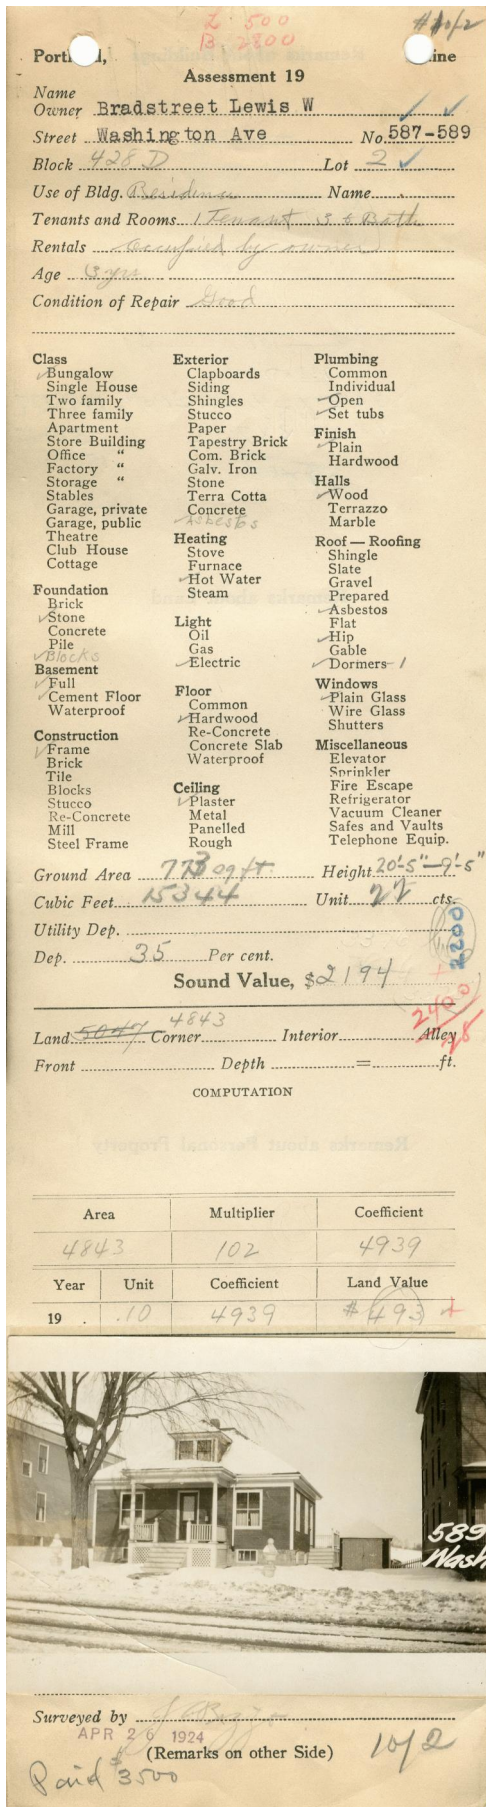 L 500
B 2800
#1012
Portland, Maine
Assessment 19
Name
Owner Bradstreet Lewis W
Street Washington Ave No. 587-589
Block 428 D Lot 2
Use of Bldg. Residence Name
Tenants and Rooms 1 Tenant 3 & Bath
Rentals occupied by owner
Age 3 yrs
Condition of Repair Good
Class
Bungalow
Single House
Two family
Three family
Apartment
Store Building
Office "
Factory "
Storage "
Stables
Garage, private
Garage, public
Theatre
Club House
Cottage
Foundation
Brick
Stone
Concrete
Pile
Blocks
Basement
Full
Cement Floor
Waterproof
Construction
Frame
Brick
Tile
Blocks
Stucco
Re-Concrete
Mill
Steel Frame
Exterior
Clapboards
Siding
Shingles
Stucco
Paper
Tapestry Brick
Com. Brick
Galv. Iron
Stone
Terra Cotta
Concrete
Asbestos
Heating
Stove
Furnace
Hot Water
Steam
Light
Oil
Gas
Electric
Floor
Common
Hardwood
Re-Concrete
Concrete Slab
Waterproof
Ceiling
Plaster
Metal
Panelled
Rough
Plumbing
Common
Individual
Open
Set tubs
Finish
Plain
Hardwood
Halls
Wood
Terrazzo
Marble
Roof — Roofing
Shingle
Slate
Gravel
Prepared
Asbestos
Flat
Hip
Gable
Dormers-1
Windows
Plain Glass
Wire Glass
Shutters
Miscellaneous
Elevator
Sprinkler
Fire Escape
Refrigerator
Vacuum Cleaner
Safes and Vaults
Telephone Equip.
Ground Area 773 sq ft. Height 20'-5"-9'-5"
Cubic Feet 15344 Unit 22 cts.
Utility Dep.
2200
Dep. 35 Per cent.
Sound Value, $2194
2400
Land 5047 4843 Corner Interior Alley
Front Depth = ft.
COMPUTATION
Area Multiplier Coefficient
4843 102 4939
Year Unit Coefficient Land Value
19 .10 4939 $493 +
589
Wash
Surveyed by
APR 26 1924
(Remarks on other Side)
1012
Paid $3500